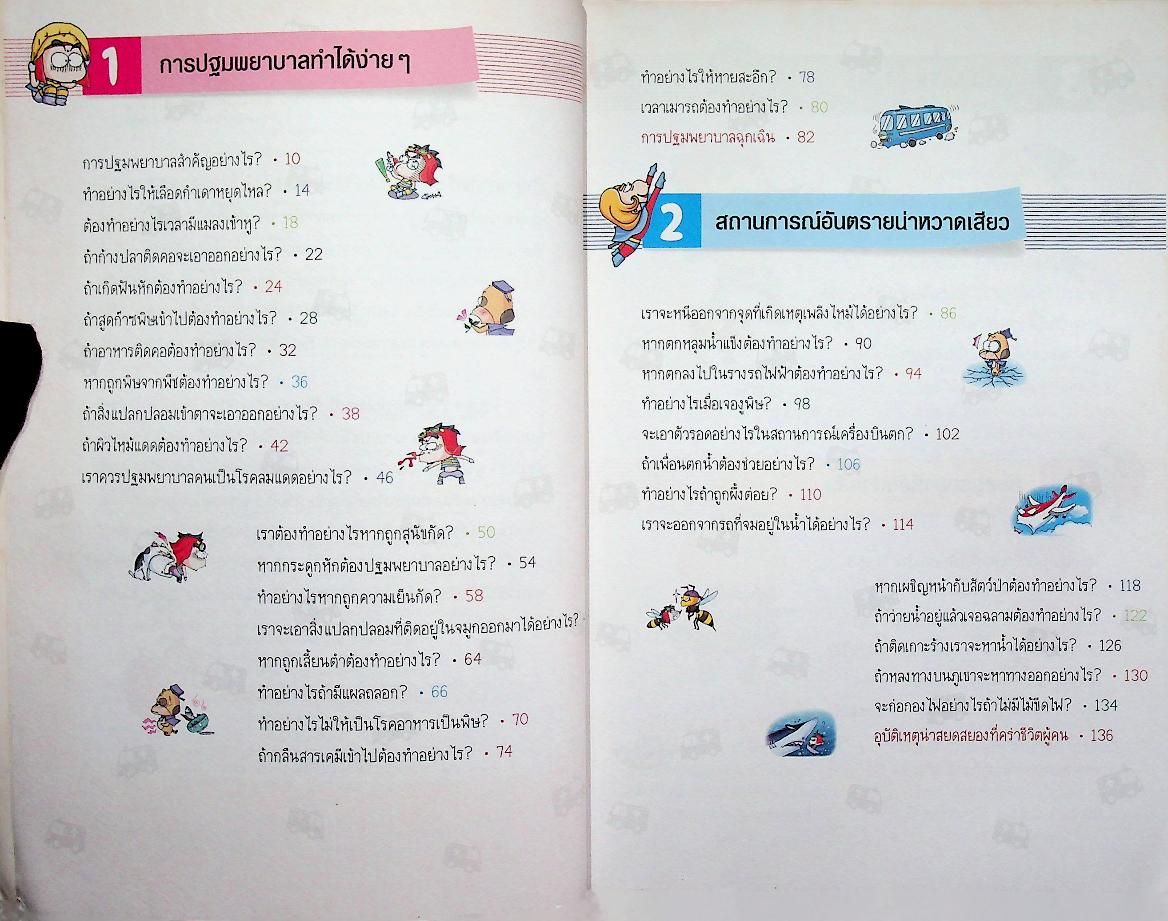 1 การปฐมพยาบาลทำได้ง่าย ๆ
การปฐมพยาบาลสำคัญอย่างไร? • 10
ทำอย่างไรให้เลือดกำเดาหยุดไหล? • 14
ต้องทำอย่างไรเวลามีแมลงเข้าหู? • 18
ถ้าก้างปลาติดคอจะเอาออกอย่างไร? • 22
ถ้าเกิดฟันหักต้องทำอย่างไร? • 24
ถ้าสูดก๊าซพิษเข้าไปต้องทำอย่างไร? • 28
ถ้าอาหารติดคอต้องทำอย่างไร? • 32
หากถูกพิษจากพืชต้องทำอย่างไร? • 36
ถ้าสิ่งแปลกปลอมเข้าตาจะเอาออกอย่างไร? • 38
ถ้าผิวไหม้แดดต้องทำอย่างไร? • 42
เราควรปฐมพยาบาลคนเป็นโรคลมแดดอย่างไร? • 46
เราต้องทำอย่างไรหากถูกสุนัขกัด? • 50
หากกระดูกหักต้องปฐมพยาบาลอย่างไร? • 54
ทำอย่างไรหากถูกความเย็นกัด? • 58
เราจะเอาสิ่งแปลกปลอมที่ติดอยู่ในจมูกออกมาได้อย่างไร?
หากถูกเสี้ยนตำต้องทำอย่างไร? • 64
ทำอย่างไรถ้ามีแผลถลอก? • 66
ทำอย่างไรไม่ให้เป็นโรคอาหารเป็นพิษ? • 70
ถ้ากลืนสารเคมีเข้าไปต้องทำอย่างไร? • 74
ทำอย่างไรให้หายสะอึก? • 78
เวลาเมารถต้องทำอย่างไร? • 80
การปฐมพยาบาลฉุกเฉิน • 82
2 สถานการณ์อันตรายน่าหวาดเสียว
เราจะหนีออกจากจุดที่เกิดเหตุเพลิงไหม้ได้อย่างไร? • 86
หากตกหลุมน้ำแข็งต้องทำอย่างไร? • 90
หากตกลงไปในรางรถไฟฟ้าต้องทำอย่างไร? • 94
ทำอย่างไรเมื่อเจองูพิษ? • 98
จะเอาตัวรอดอย่างไรในสถานการณ์เครื่องบินตก? • 102
ถ้าเพื่อนตกน้ำต้องช่วยอย่างไร? • 106
ทำอย่างไรถ้าถูกผึ้งต่อย? • 110
เราจะออกจากรถที่จมอยู่ในน้ำได้อย่างไร? • 114
หากเผชิญหน้ากับสัตว์ป่าต้องทำอย่างไร? • 118
ถ้าว่ายน้ำอยู่แล้วเจอฉลามต้องทำอย่างไร? • 122
ถ้าติดเกาะร้างเราจะหาน้ำได้อย่างไร? • 126
ถ้าหลงทางบนภูเขาจะหาทางออกอย่างไร? • 130
จะก่อกองไฟอย่างไรถ้าไม่มีไม้ขีดไฟ? • 134
อุบัติเหตุน่าสยดสยองที่คร่าชีวิตผู้คน • 136